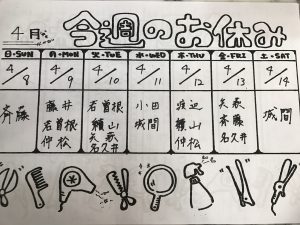 4月
今週のお休み
日・SUN 月・MON 火・TUE 水・WED 木・THU 金・FRI 土・SAT
4/8 4/9 4/10 4/11 4/12 4/13 4/14
斉藤 藤井 若曽根 小田 渡辺 矢萩 城間
若曽根 績山 城間 績山 斉藤
仲松 矢萩 仲松 名久井
名久井